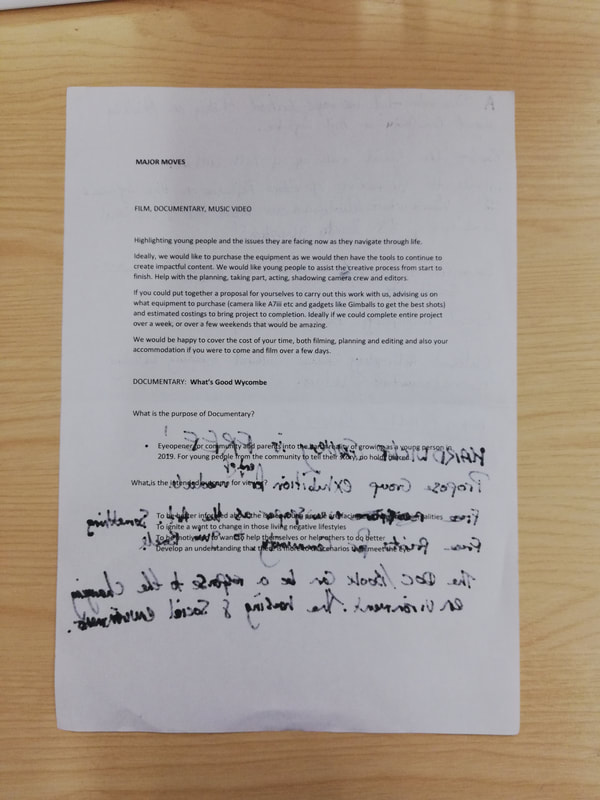 MAJOR MOVES
FILM, DOCUMENTARY, MUSIC VIDEO
Highlighting young people and the issues they are facing now as they navigate through life.
Ideally, we would like to purchase the equipment as we would then have the tools to continue to
create impactful content. We would like young people to assist the creative process from start to
finish. Help with the planning, taking part, acting, shadowing camera crew and editors.
If you could put together a proposal for yourselves to carry out this work with us, advising us on
what equipment to purchase (camera like A7iii etc and gadgets like Gimballs to get the best shots)
and estimated costings to bring project to completion. Ideally if we could complete entire project
over a week, or over a few weekends that would be amazing.
We would be happy to cover the cost of your time, both filming, planning and editing and also your
accommodation if you were to come and film over a few days.
DOCUMENTARY: What's Good Wycombe
What is the purpose of Documentary?
• Eyeopener for community and parents into the reality of growing as a young person in
2019. For young people from the community to tell their story, no holds
is FREE!
Propose Group exhibition for
What is the intended for
To be better informed
To ignite a want to change in those living negative lifestyles
Free
To be want to help themselves or help others to do better
Free Prints for community
Develop an understanding that
The Doc/Book can be a response to the changing
environment. The housing & Social environments.